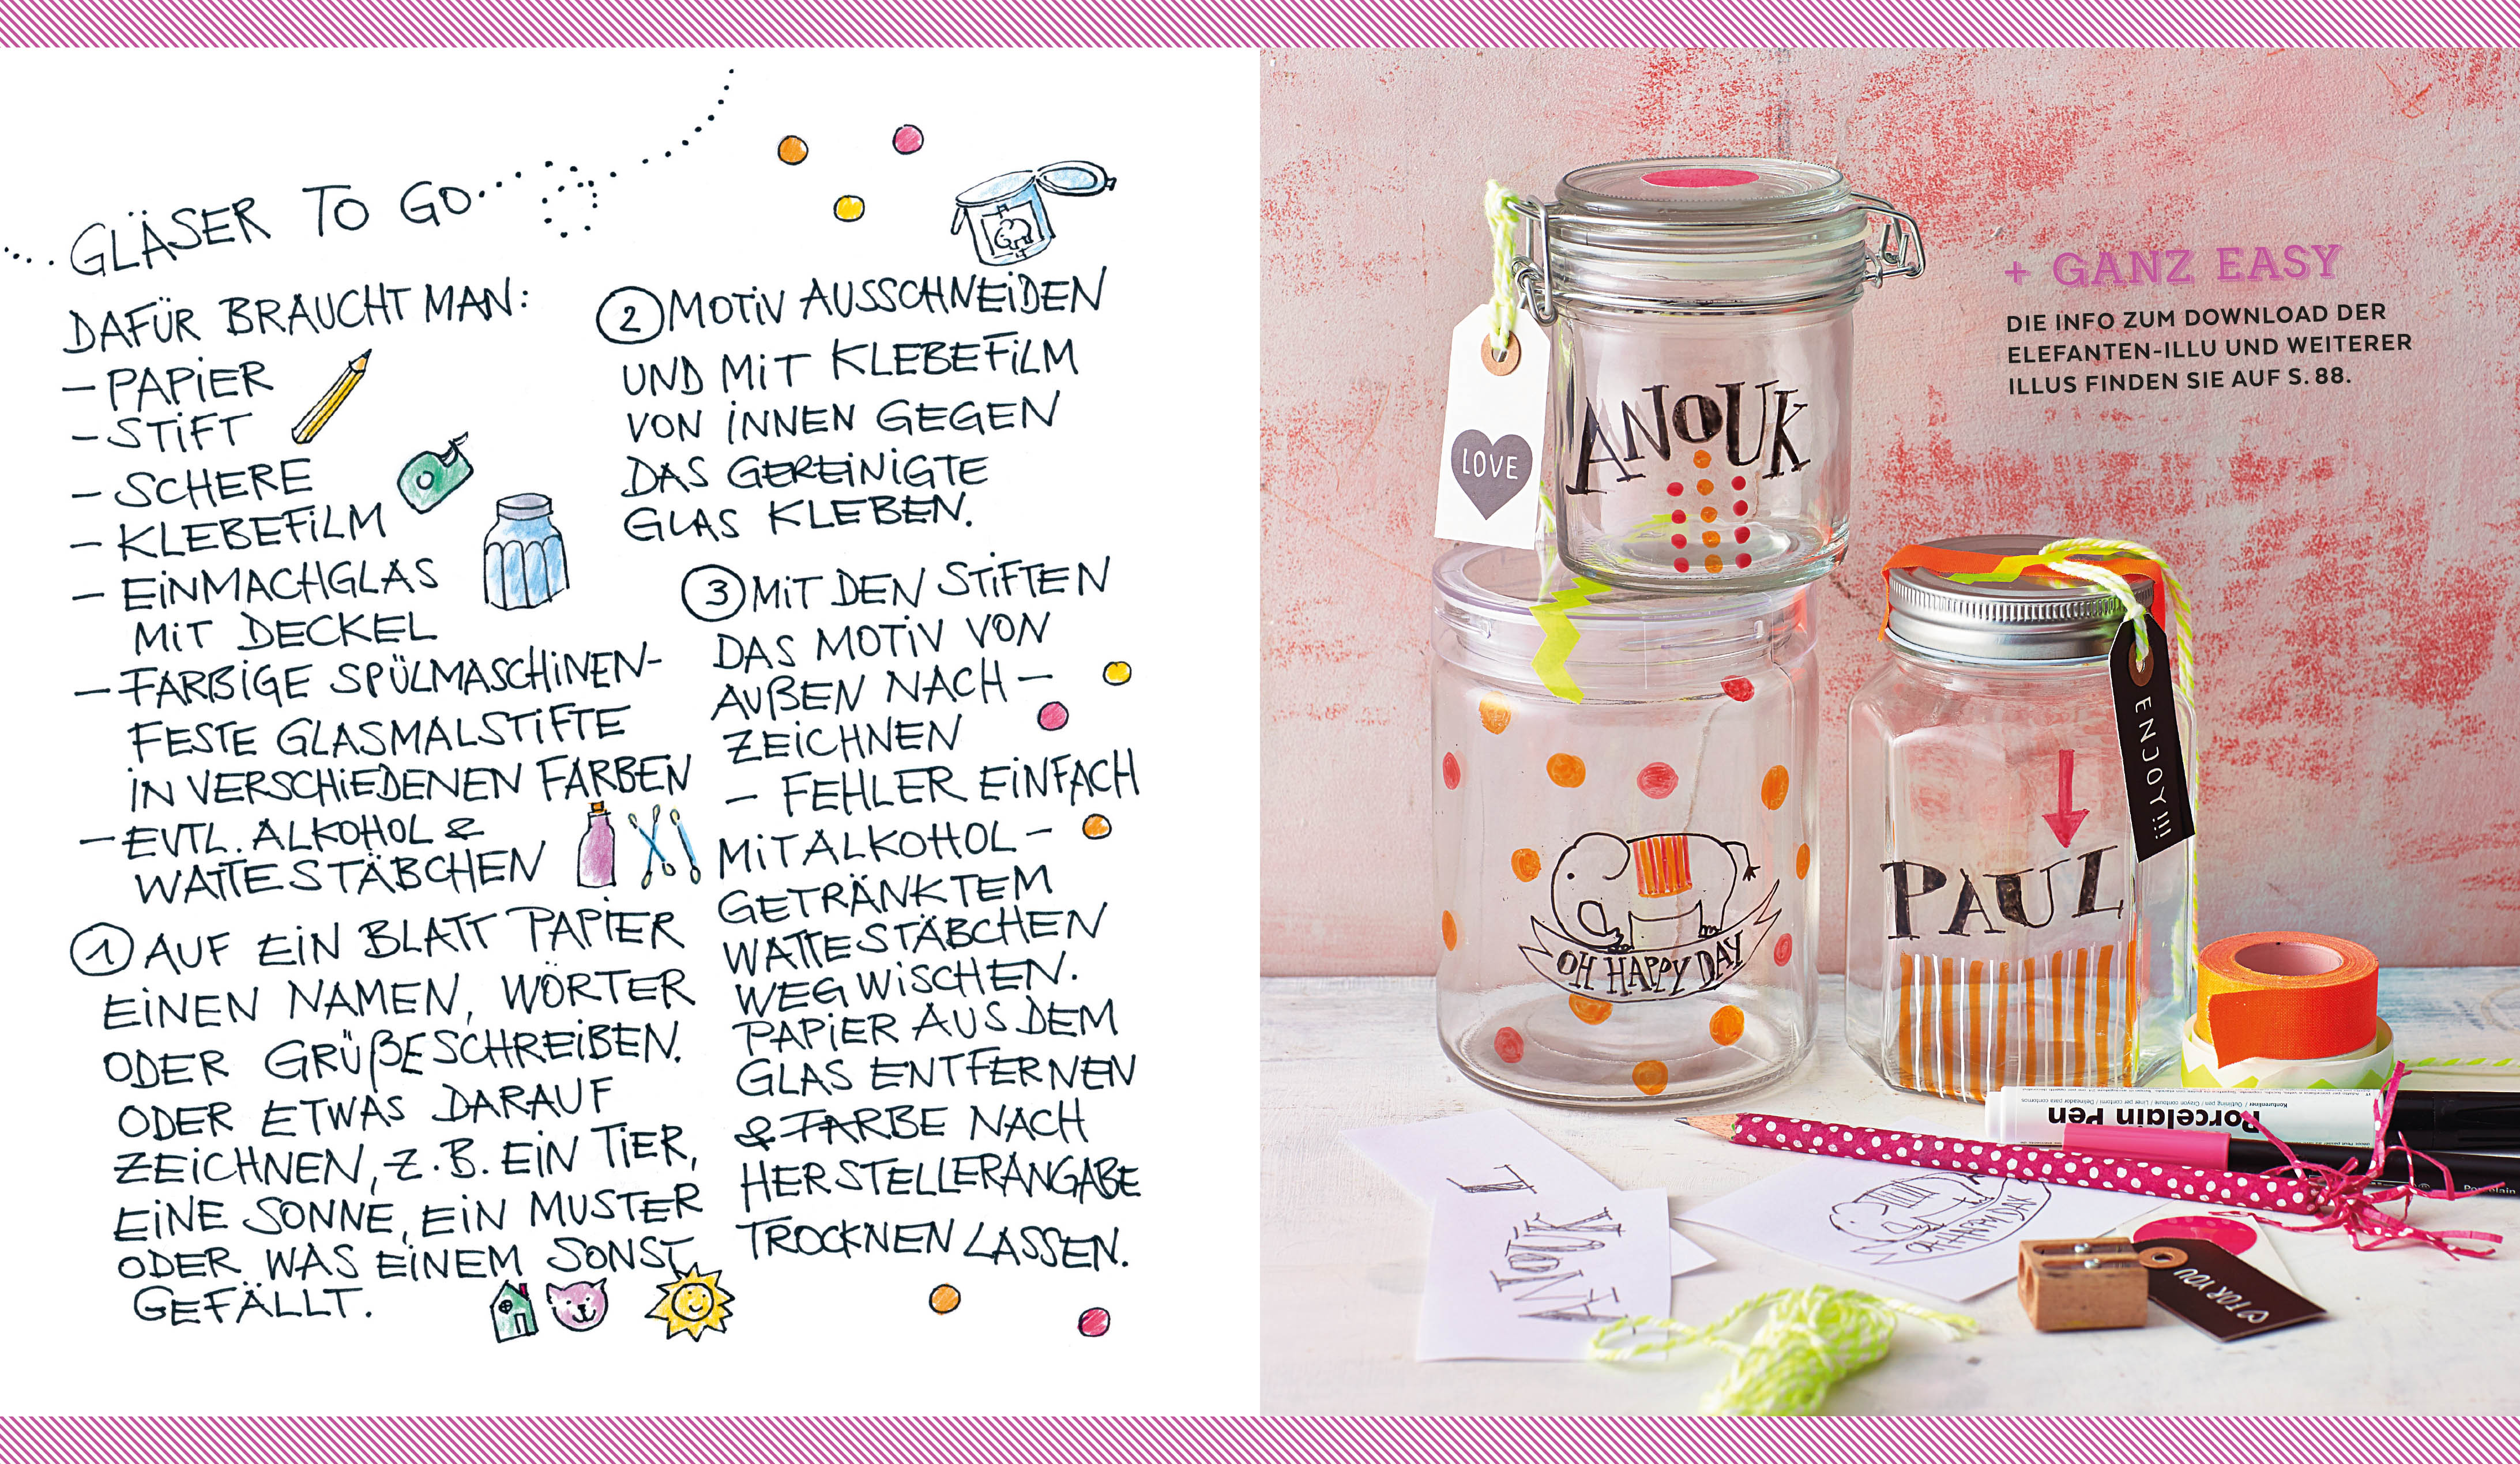 GLÄSER TO GO
DAFÜR BRAUCHT MAN:
– PAPIER
– STIFT
– SCHERE
– KLEBEFILM
– EINMACHGLAS
MIT DECKEL
– FARBIGE SPÜLMASCHINEN-
FESTE GLASMALSTIFTE
IN VERSCHIEDENEN FARBEN
– EVTL. ALKOHOL &
WATTESTÄBCHEN
1 AUF EIN BLATT PAPIER
EINEN NAMEN, WÖRTER
ODER GRÜßE SCHREIBEN.
ODER ETWAS DARAUF
ZEICHNEN, Z.B. EIN TIER,
EINE SONNE, EIN MUSTER
ODER WAS EINEM SONST
GEFÄLLT.
2 MOTIV AUSSCHNEIDEN
UND MIT KLEBEFILM
VON INNEN GEGEN
DAS GEREINIGTE
GLAS KLEBEN.
3 MIT DEN STIFTEN
DAS MOTIV VON
AUßEN NACH-
ZEICHNEN
– FEHLER EINFACH
MIT ALKOHOL-
GETRÄNKTEM
WATTESTÄBCHEN
WEGWISCHEN.
PAPIER AUS DEM
GLAS ENTFERNEN
& FARBE NACH
HERSTELLERANGABE
TROCKNEN LASSEN.
+ GANZ EASY
DIE INFO ZUM DOWNLOAD DER
ELEFANTEN-ILLU UND WEITERER
ILLUS FINDEN SIE AUF S. 88.
LOVE
ANOUK
ENJOY!!!
PAUL
OH HAPPY DAY
Porcelain Pen
OH HAPPY DAY
ANOUK
FOR YOU